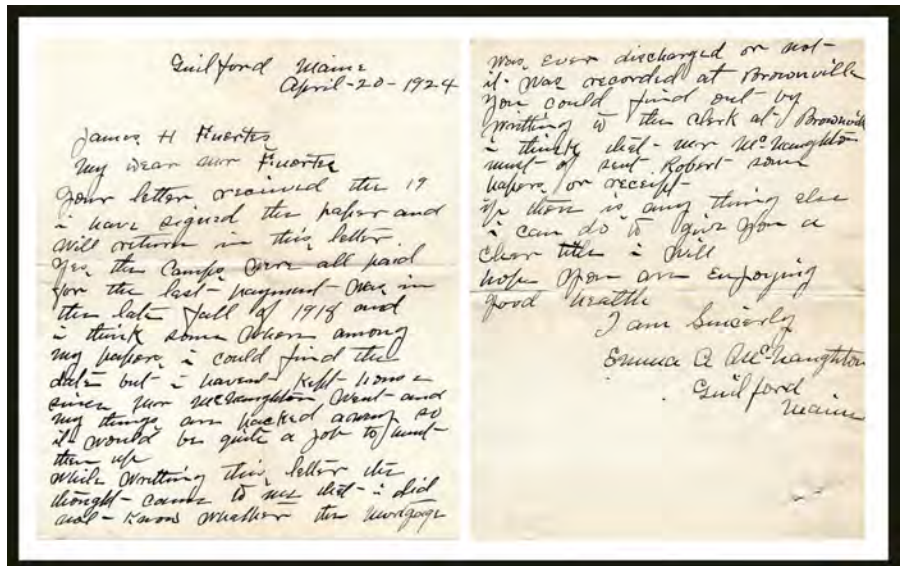 Guilford Maine
April-20-1924
James H Fuertes
My Dear mr Fuertes
your letter received the 19
i have signed the paper and
will return in this letter.
yes the Camps were all paid
for the last payment was in
the late fall of 1918 and
i think some where among
my papers i could find the
date but i havent kept house
since mr McNaughton went and
my things are packed away so
it would be quite a job to hunt
them up
while writting this letter the
thought came to me that i did
not know whather the mortgage
was ever discharged or not-
it was recorded at Brownville
you could find out by
writting to the clerk at Brownville
i think that mr McNaughton
must of sent Robert some
papers or receipt-
if there is any thing else
i can do to give you a
clear title i will
hope you are enjoying
good health
I am Sincerly
Emma A McNaughton
Guilford
Maine